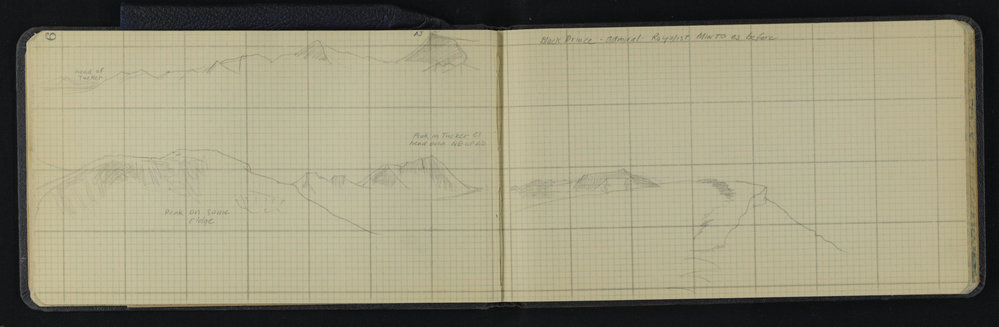 9
N
head of
Tucker
Peak in Tucker Gl
head over NE
Peak on same
ridge
Black Prince - Admiral - Royalist Minto as before